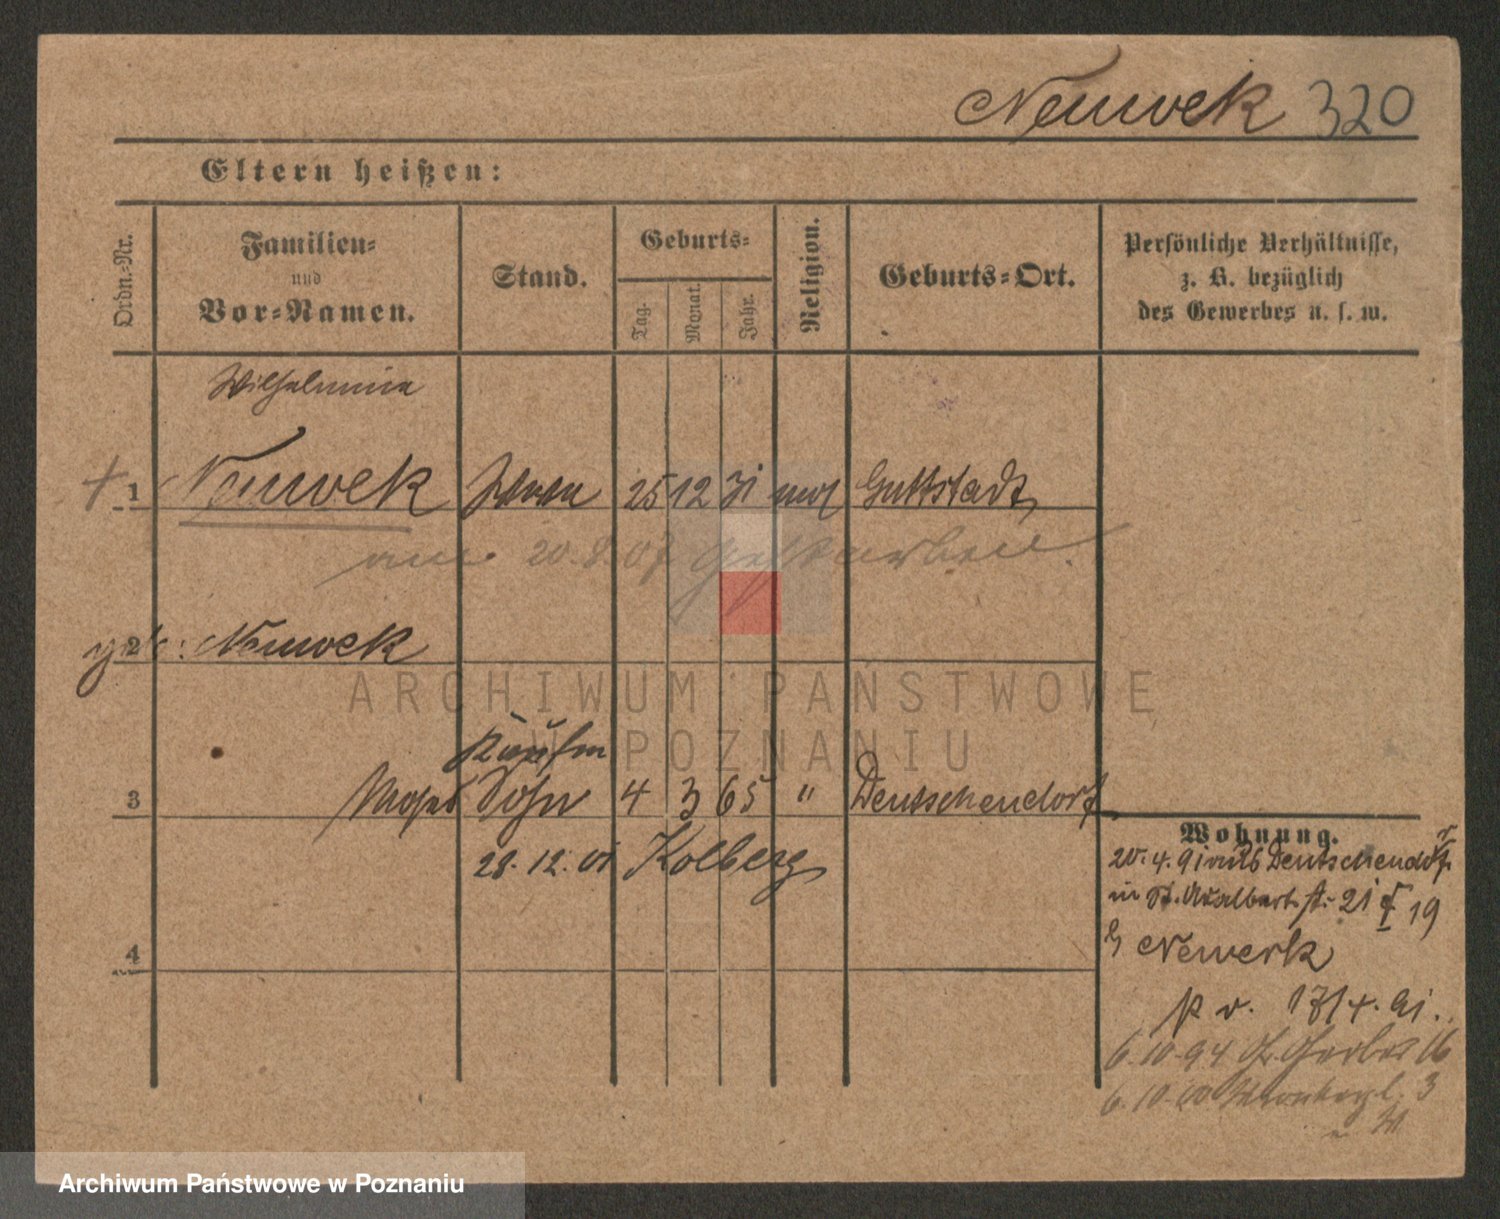 Neuwek 320
Eltern heißen:
Ordn.-Nr.
Familien-
und
Vor-Namen.
Stand.
Geburts-
Tag.
Monat.
Jahr.
Religion.
Geburts-Ort.
Persönliche Verhältnisse,
z. B. bezüglich
des Gewerbes u. s. w.
Wilhelmine
1 Neuwek 25 12 31 mos Guttstadt
am 20.8.07 gestorben.
2 geb: Neuwek
Kaufm
3 Moses Sohn 4 3 65 " Deutschendorf
28.12.01 Kolberg
4
Wohnung.
20.4.91 aus Deutschendorf
in St. Adalbertst. 21 I 19
b Newerk
p v. 17/4.91.
6.10.94 Gr. Gerber 16
6.10.00 3
ARCHIWUM PAŃSTWOWE
W POZNANIU
Archiwum Państwowe w Poznaniu